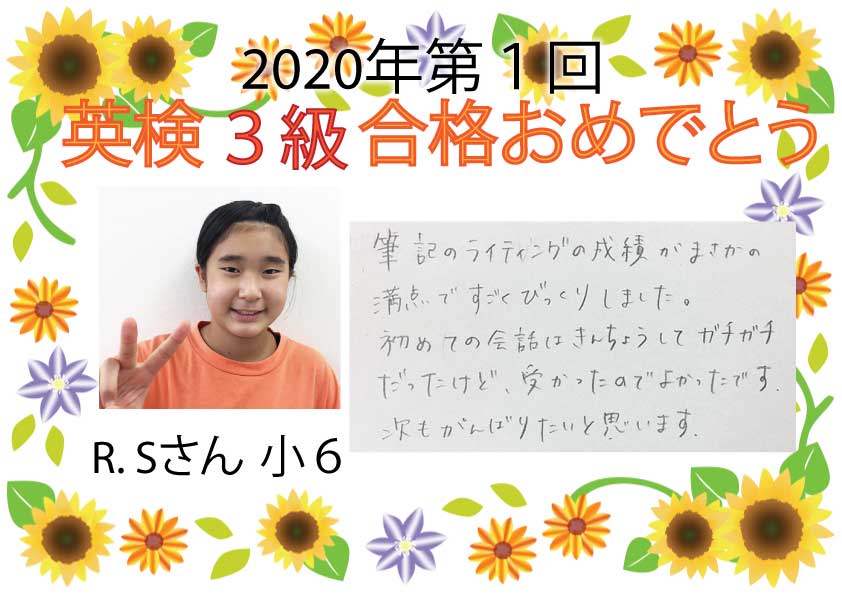 2020年第１回
英検３級合格おめでとう
筆記のライティングの成績がまさかの
満点ですごくびっくりしました。
初めての会話はきんちょうしてガチガチ
だったけど、受かったのでよかったです.
次もがんばりたいと思います.
R. Sさん 小６